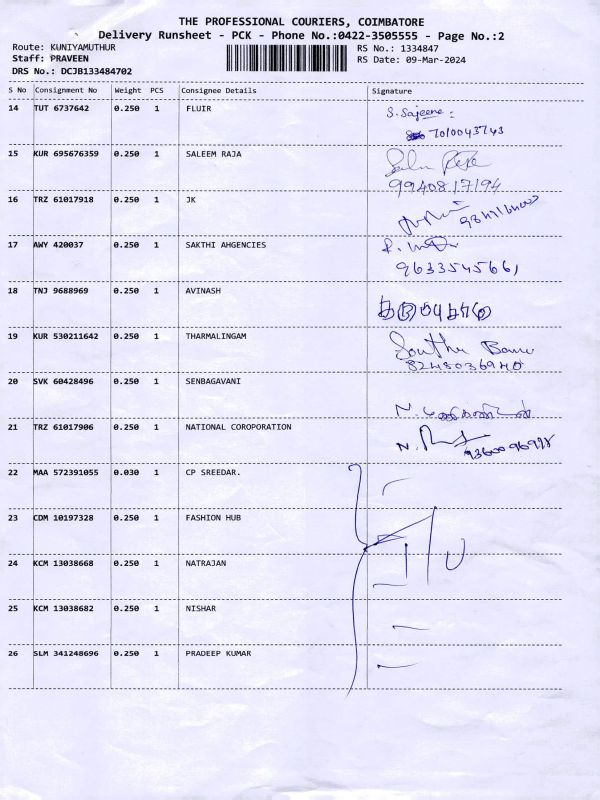 THE PROFESSIONAL COURIERS, COIMBATORE
Delivery Runsheet - PCK - Phone No.:0422-3505555 - Page No.:2
Route: KUNIYAMUTHUR RS No.: 1334847
Staff: PRAVEEN RS Date: 09-Mar-2024
DRS No.: DCJB133484702
S No Consignment No Weight PCS Consignee Details Signature
14 TUT 6737642 0.250 1 FLUIR S. Sajeena
7010043743
15 KUR 695676359 0.250 1 SALEEM RAJA
9940817194
16 TRZ 61017918 0.250 1 JK
17 AWY 420037 0.250 1 SAKTHI AHGENCIES
9633545661
18 TNJ 9688969 0.250 1 AVINASH
19 KUR 530211642 0.250 1 THARMALINGAM
8248036940
20 SVK 60428496 0.250 1 SENBAGAVANI
21 TRZ 61017906 0.250 1 NATIONAL COROPORATION
22 MAA 572391055 0.030 1 CP SREEDAR.
23 CDM 10197328 0.250 1 FASHION HUB
24 KCM 13038668 0.250 1 NATRAJAN
25 KCM 13038682 0.250 1 NISHAR
26 SLM 341248696 0.250 1 PRADEEP KUMAR